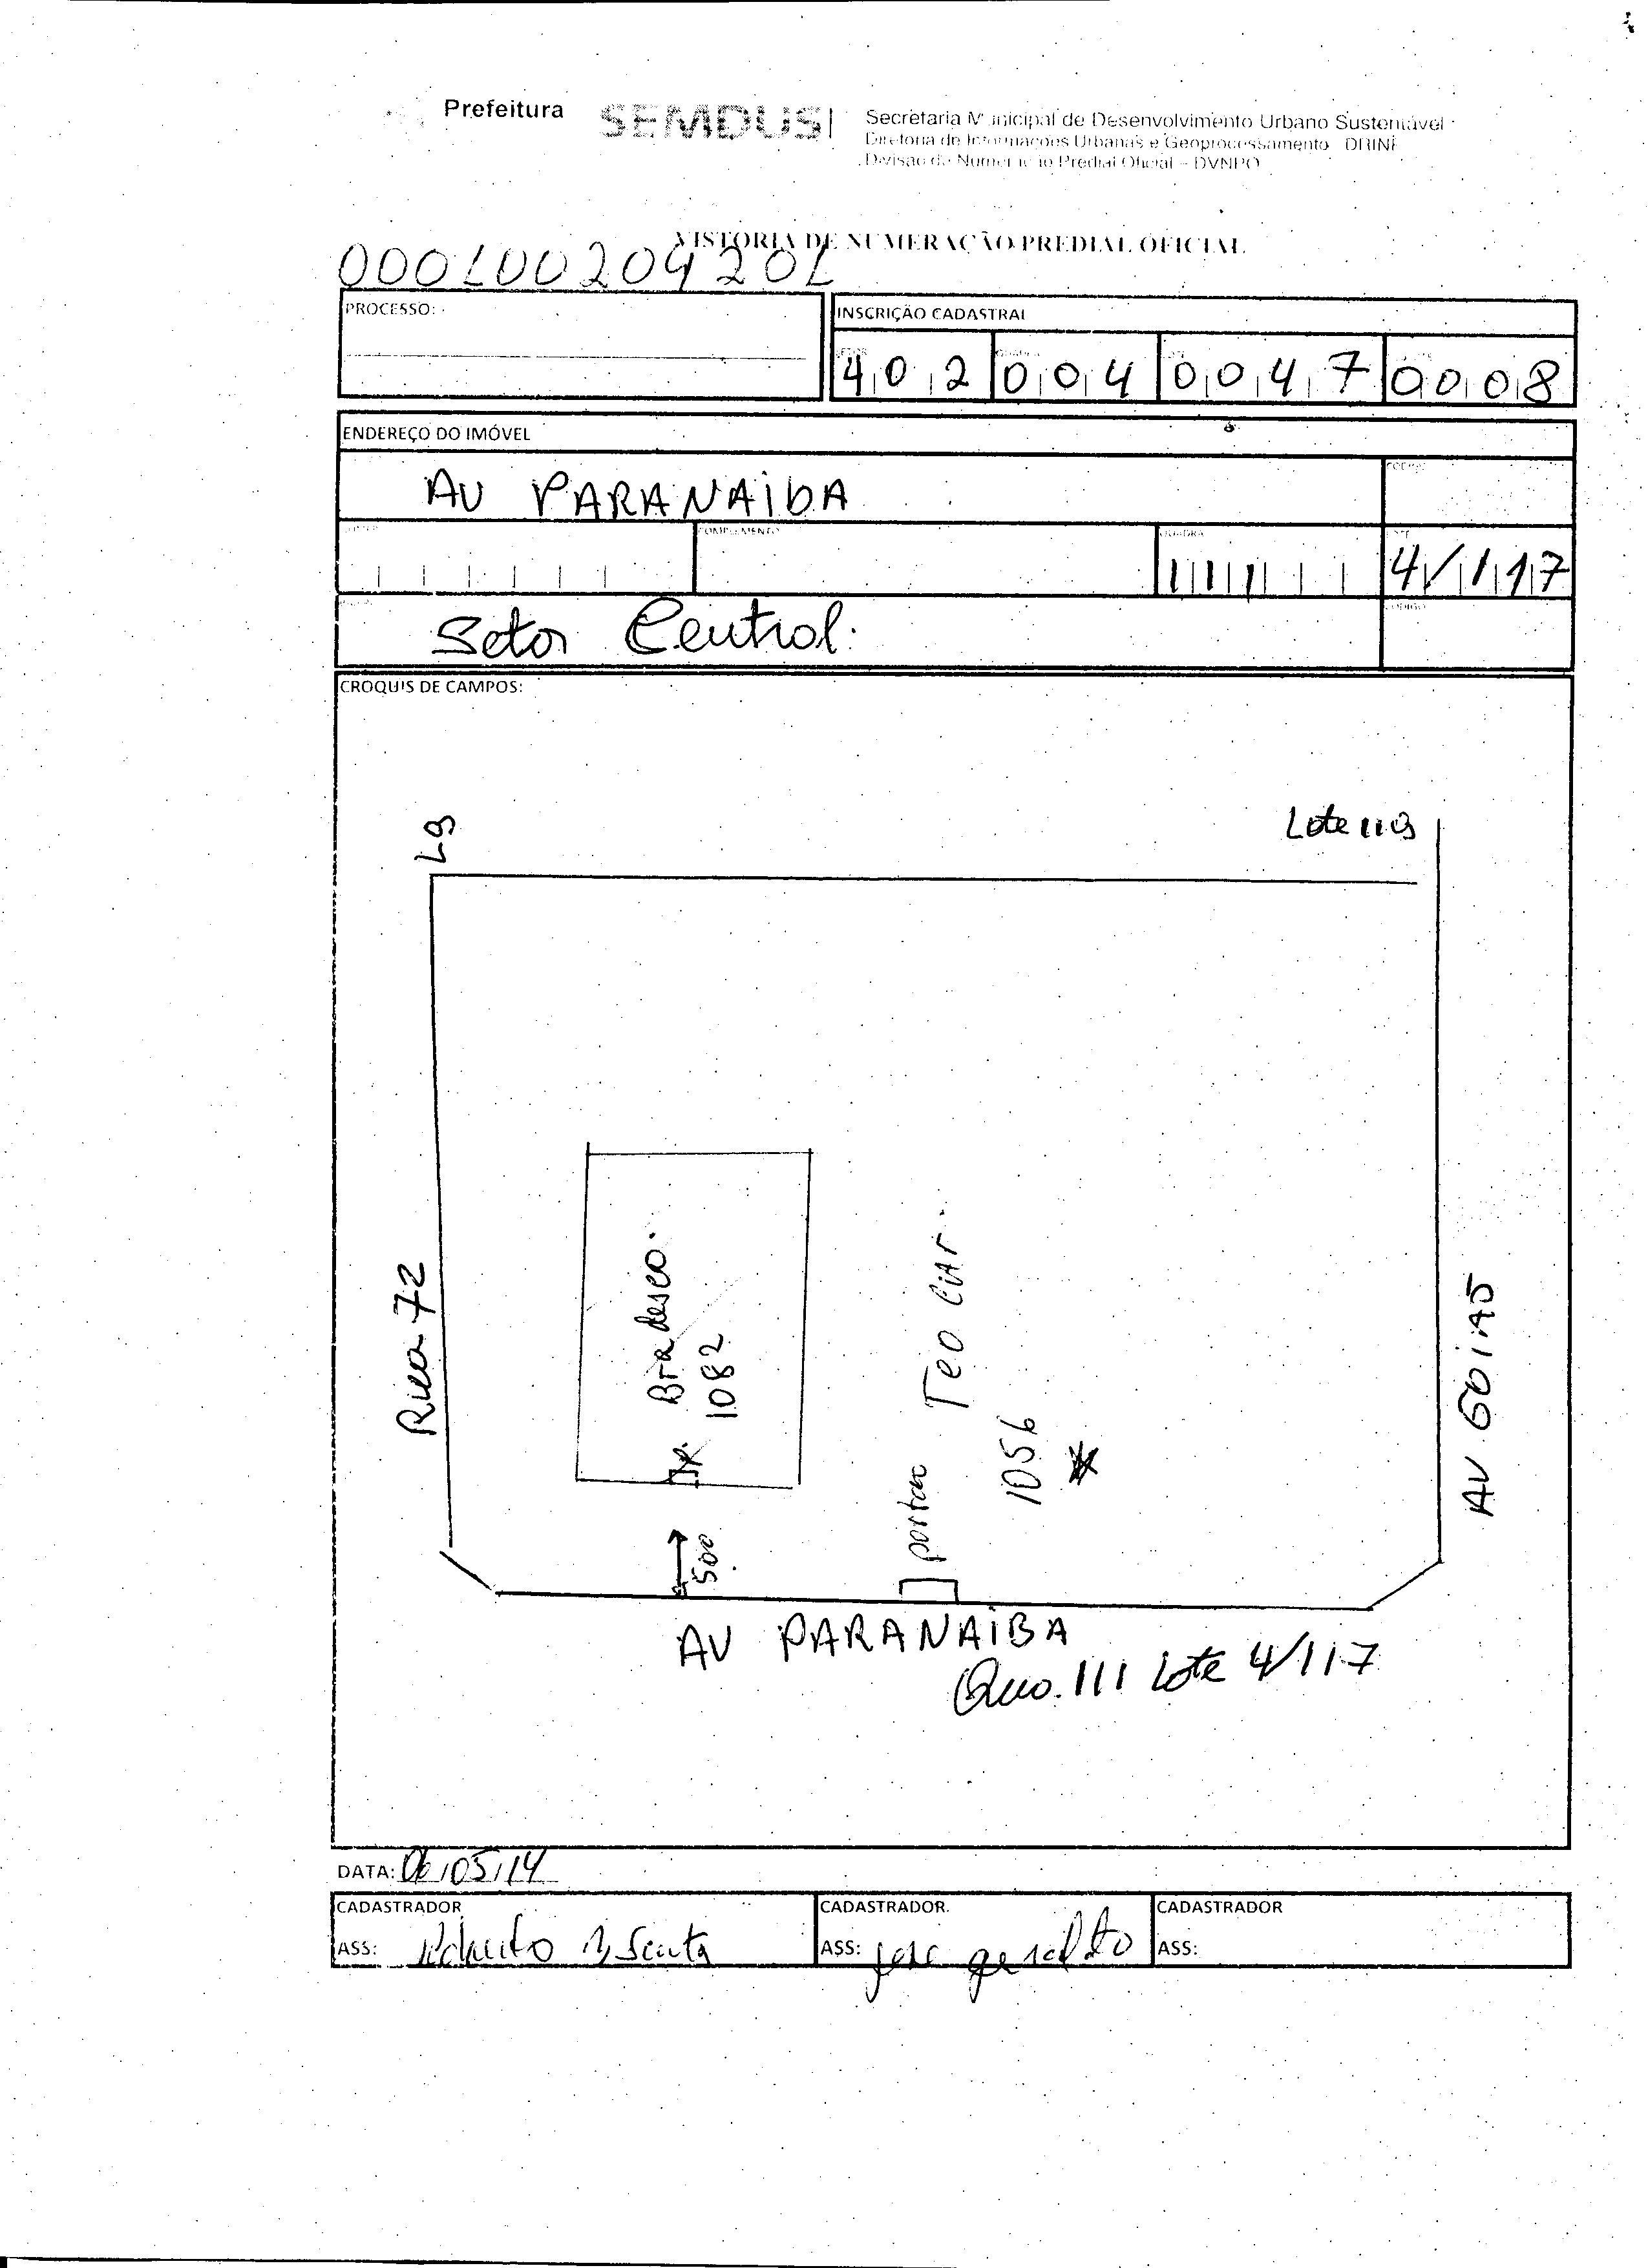 Prefeitura
SEMDUS
Secretaria Municipal de Desenvolvimento Urbano Sustentável
Diretoria de Informações Urbanas e Geoprocessamento DRINF
Divisão de Numeração Predial Oficial – DVNPO
VISTORIA DE NUMERAÇÃO PREDIAL OFICIAL
PROCESSO:
INSCRIÇÃO CADASTRAL
402 004 0047 0008
ENDEREÇO DO IMÓVEL
AV PARANAIBA
COMPLEMENTO
QUADRA
LOTE
111 4/117
CÓDIGO
Setor Central
CROQUIS DE CAMPOS:
L9
Lote 119
Rua 72
Bradesco
1082
500
portao
Teo Car
1056
AV GOIAS
AV PARANAIBA
Qua. 111 Lote 4/117
DATA: 06/05/14
CADASTRADOR
ASS:
CADASTRADOR.
ASS: jose geraldo
CADASTRADOR
ASS: